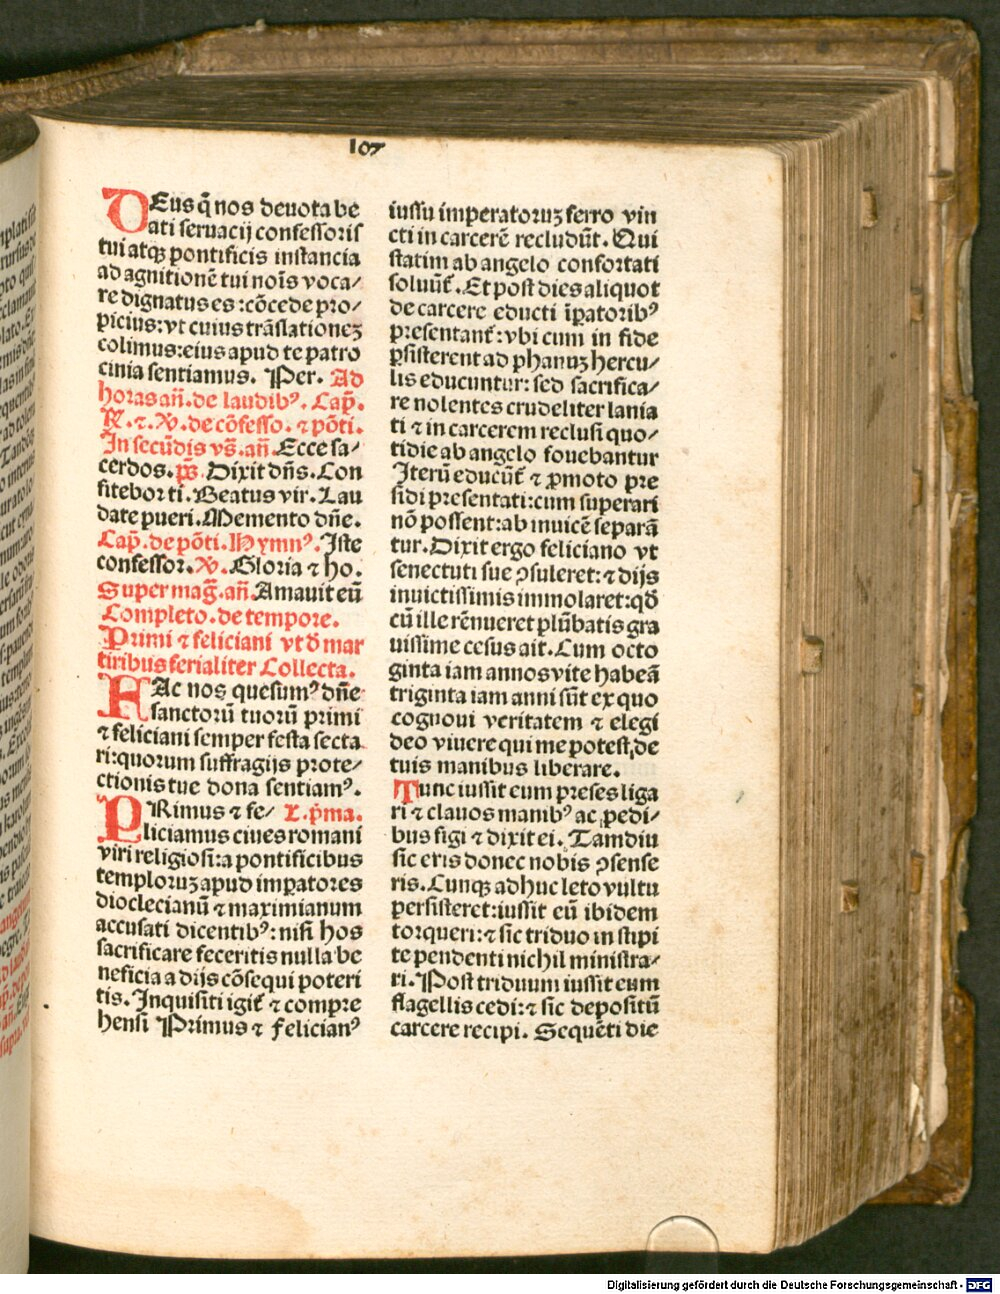 107
DEus q̄ nos deuota be
ati seruacij confessoris
tui atqꝫ pontificis instancia
ad agnitionē tui noīs voca/
re dignatus es : cōcede pro/
picius: vt cuius trāslationeꝫ
colimus: eius apud te patro
cinia sentiamus. Per. Ad
horas añ. de laudibꝰ. Cap̄.
℟. ⁊. ℣. de cōfesso. ⁊ pōti.
In secūdis vs̄. añ. Ecce sa-
cerdos. p̄s. Dixit dn̄s. Con
fitebor ti. Beatus vir. Lau
date pueri. Memento dn̄e.
Cap̄. de pōti. Hymnꝰ. Iste
confessor. ℣. Gloria ⁊ ho.
Super mag̅. añ. Amauit eū
Completo. de tempore.
Primi ⁊ feliciani vt d̄ mar
tiribus ferialiter Collecta.
HAc nos quesumꝰ dn̄e
sanctorū tuorū primi
⁊ feliciani semper festa secta
ri: quorum suffragijs prote/
ctionis tue dona sentiamꝰ.
PRimus ⁊ fe/ L. p̄ma.
liciamus ciues romani
viri religiosi: a pontificibus
temploruꝫ apud imꝑatores
dioclecianū ⁊ maximianum
accusati dicentibꝰ: nisi hos
sacrificare feceritis nulla be
neficia a dijs cōsequi poteri
tis. Inquisiti igit̄ ⁊ compre
hensi Primus ⁊ Felicianꝰ
iussu imperatoruꝫ ferro vin
cti in carcerē recludūt. Qui
statim ab angelo confortati
soluūt̄. Et post dies aliquot
de carcere educti īꝑatoribꝰ
presentant̄: vbi cum in fide
ꝑsisterent ad phanuꝫ hercu/
lis educuntur: sed sacrifica/
re nolentes crudeliter lania
ti ⁊ in carcerem reclusi quo/
tidie ab angelo fouebantur
Iterū educūt̄ ⁊ ꝓmoto pre
sidi presentati: cum superari
nō possent: ab inuicē separā
tur. Dixit ergo feliciano vt
senectuti sue ꝯsuleret: ⁊ dijs
inuictissimis immolaret: qd̄
cū ille rēnueret plūbatis gra
uissime cesus ait. Cum octo
ginta iam annos vite habeā
triginta iam anni sūt ex quo
cognoui veritatem ⁊ elegi
deo viuere qui me potest, de
tuis manibus liberare.
Tunc iussit eum preses liga
ri ⁊ clauos manibꝰ ac pedi/
bus figi ⁊ dixit ei. Tamdiu
sic eris donec nobis ꝯsense
ris. Cunqꝫ adhuc leto vultu
persisteret: iussit eū ibidem
torqueri: ⁊ sic triduo in stipi
te pendenti nichil ministra/
ri. Post triduum iussit eum
flagellis cedi: ⁊ sic depositū
carcere recipi. Sequēti die
Digitalisierung gefördert durch die Deutsche Forschungsgemeinschaft - DFG